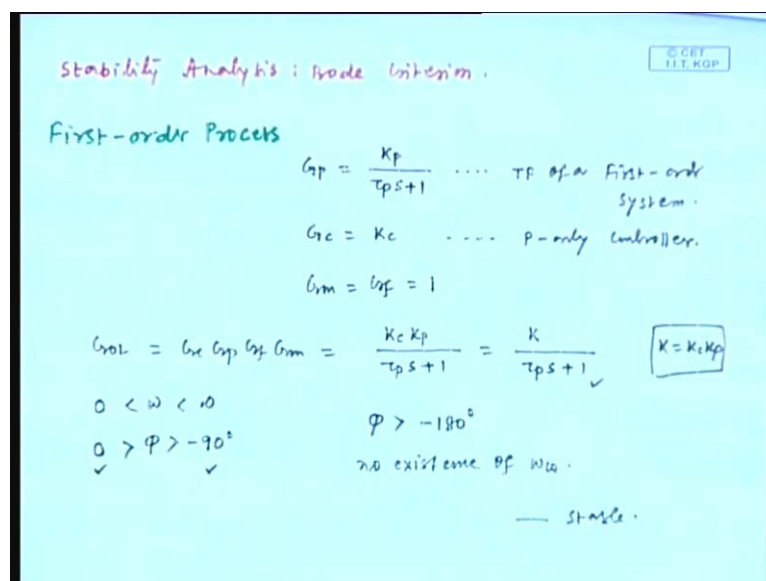 Stability Analysis : Bode Criterion.
© CET
I.I.T. KGP
First-order Process
Gp = Kp / τps+1 .... TF of a First-order system.
Gc = Kc .... P-only Controller.
Gm = Gf = 1
GOL = Gc Gp Gf Gm = Kc Kp / τps+1 = K / τps+1 K = KcKp
0 < ω < ∞
φ > -180°
0 > φ > -90°
no existence of ωco.
— stable.